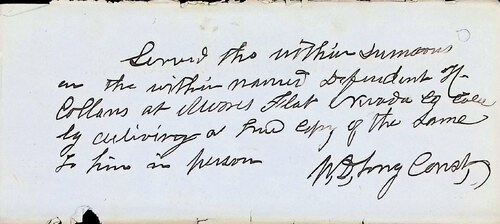 Served the within Sumons
on the within named Defendent H.
Collans at Moores Flat Nevada Co Cala
by deliving a true copy of the same
to him in person
W.D. Long Const